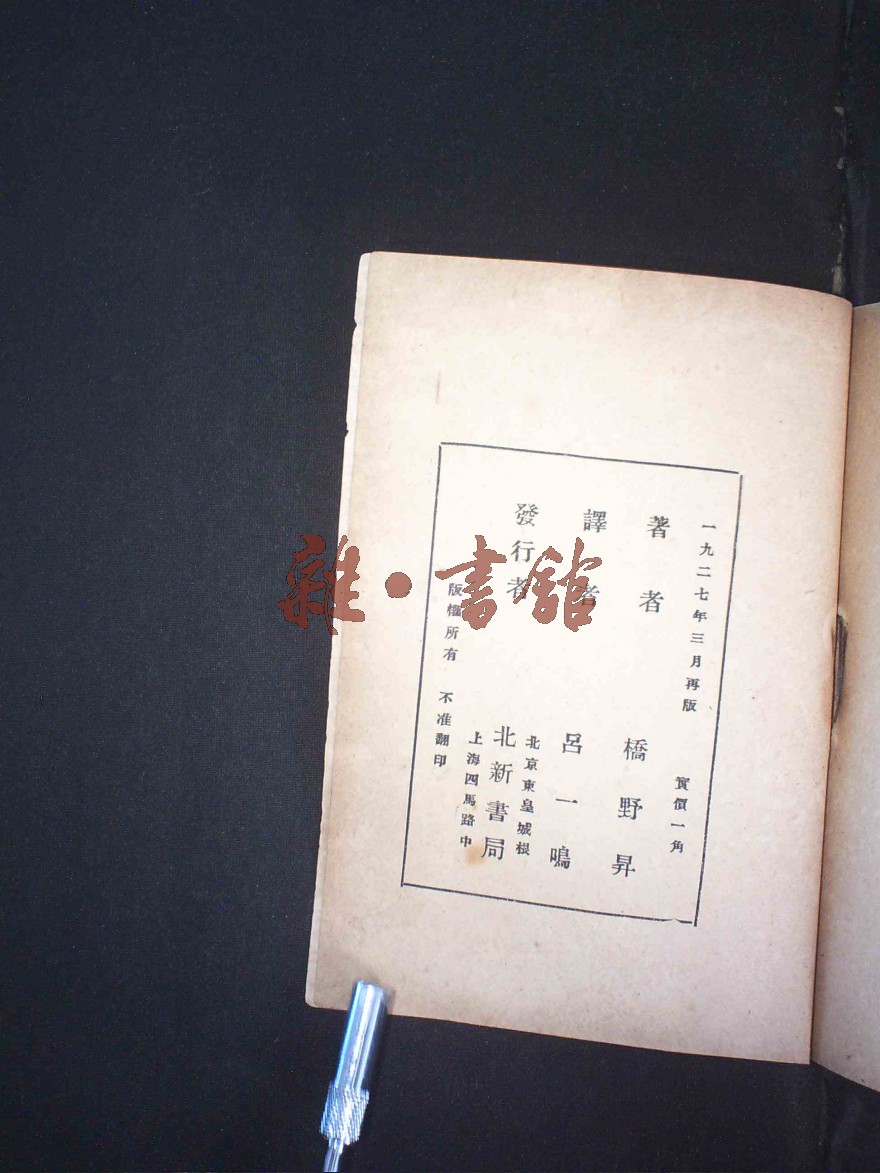 一九二七年三月再版
實價一角
著者 橋野昇
譯者 呂一鳴
發行者 北新書局
北京東皇城根
上海四馬路中
版權所有 不准翻印
雜·書館